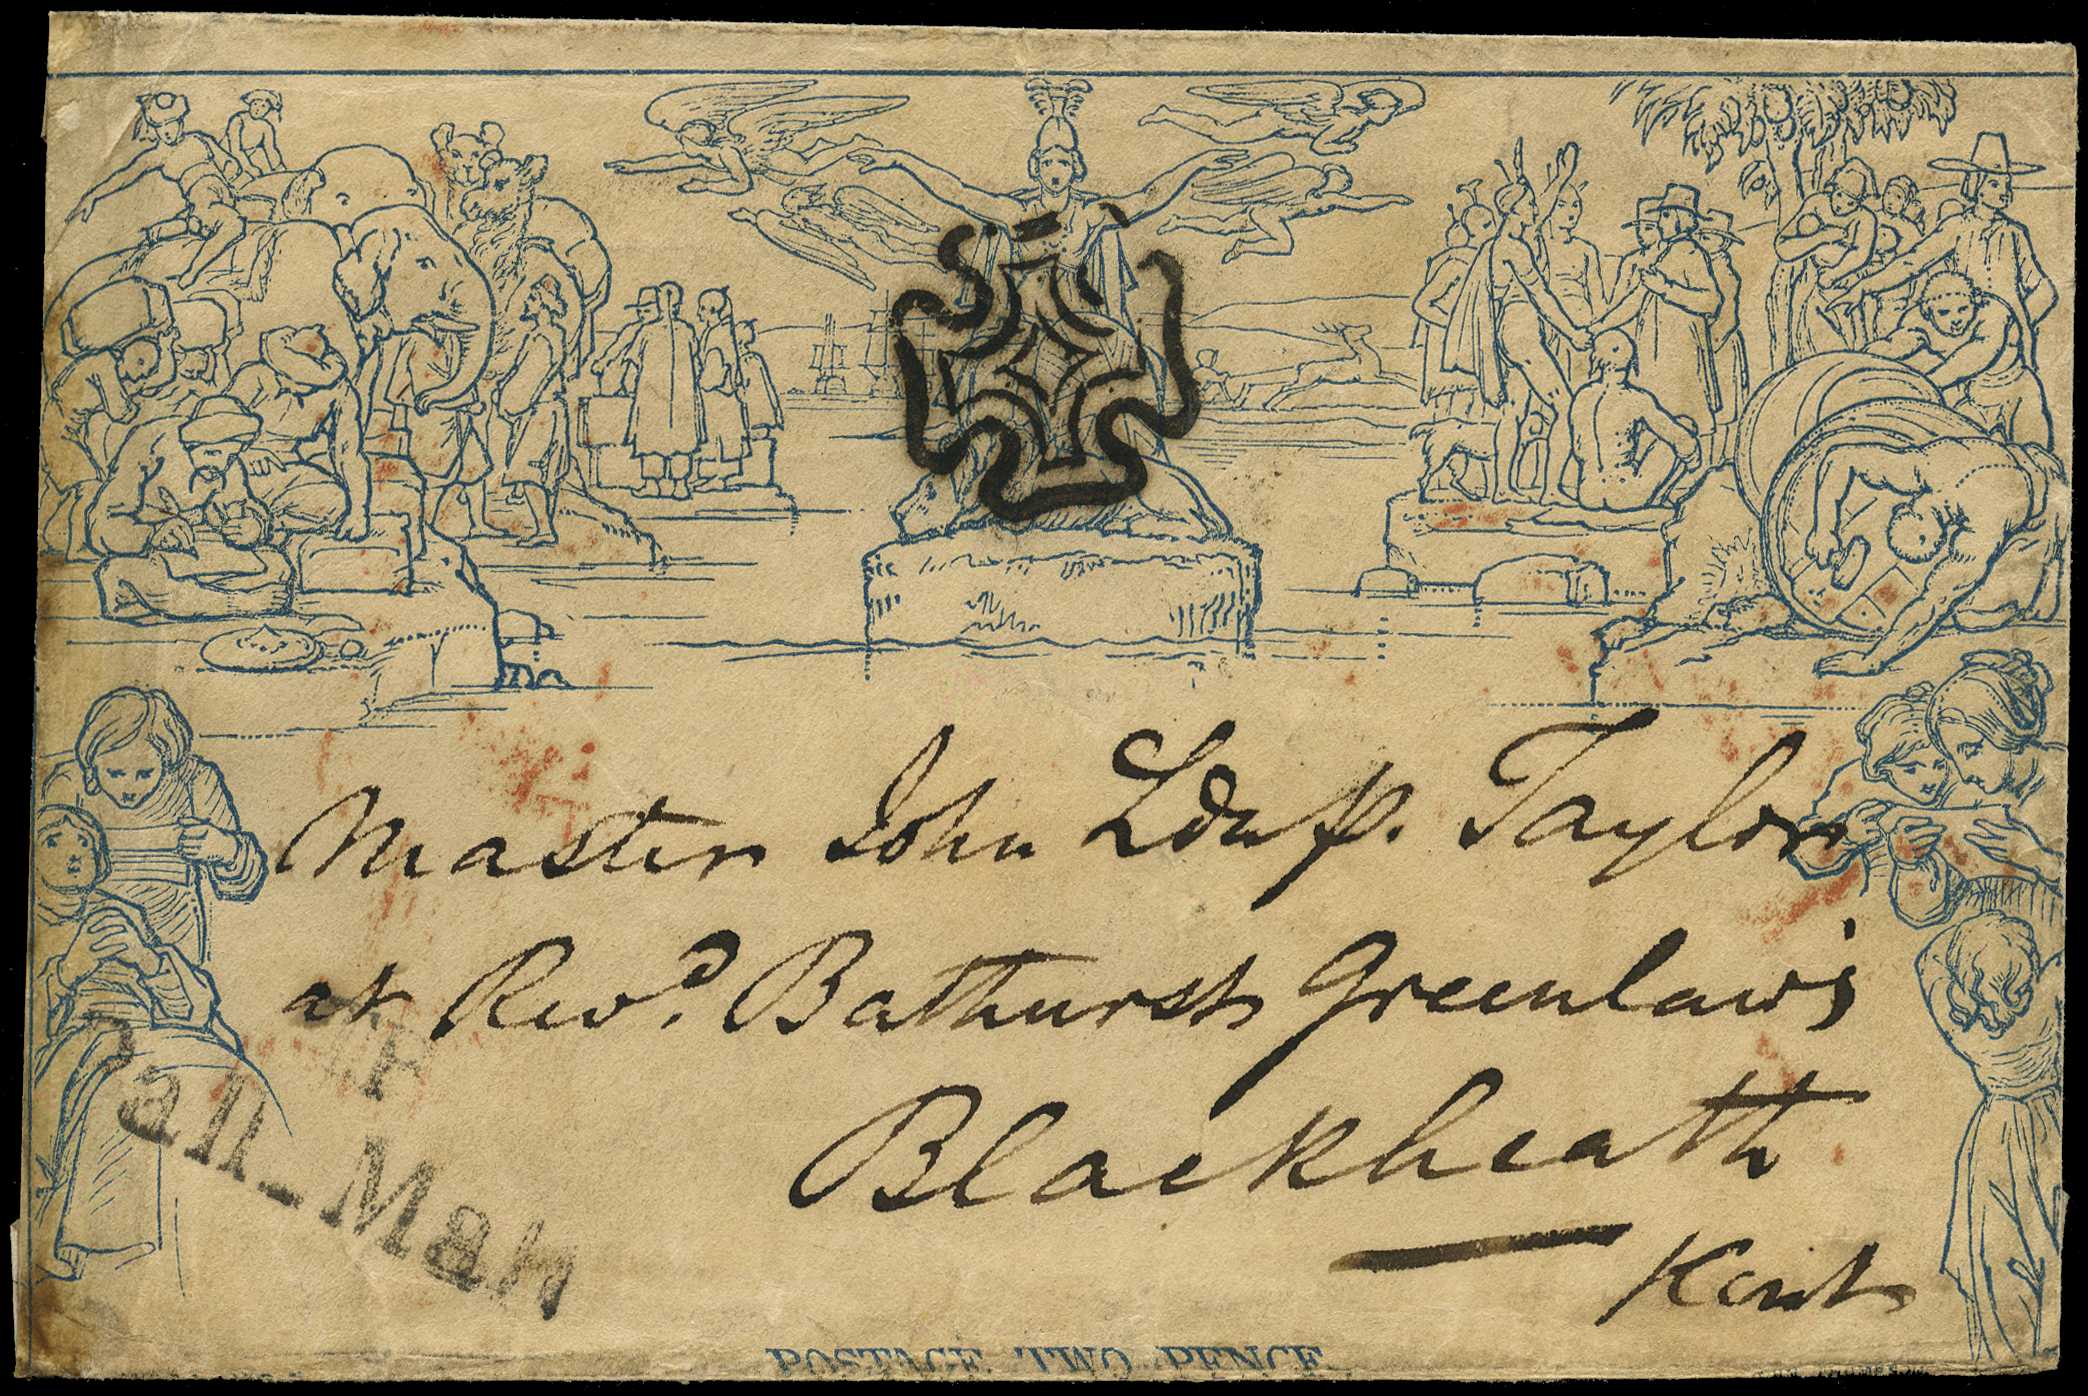 Master John Taylor
at Revd. Bathurst Greenlaw's
Blackheath
Kent
TP
Pall-Mall
POSTAGE TWO PENCE